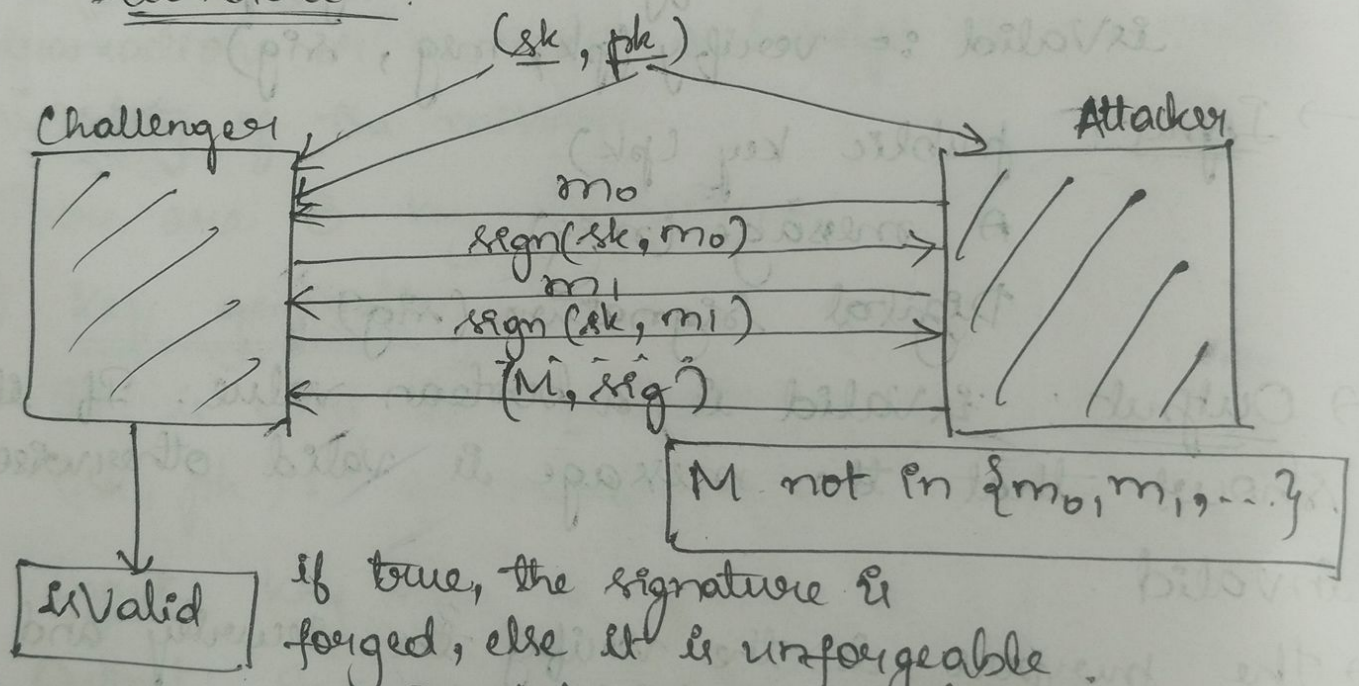 (sk, pk)
Challenger
Attacker
m0
sign(sk, m0)
m1
sign (sk, m1)
(M, sig)
M not in {m0, m1, ...}
isValid
if true, the signature is
forged, else it is unforgeable.